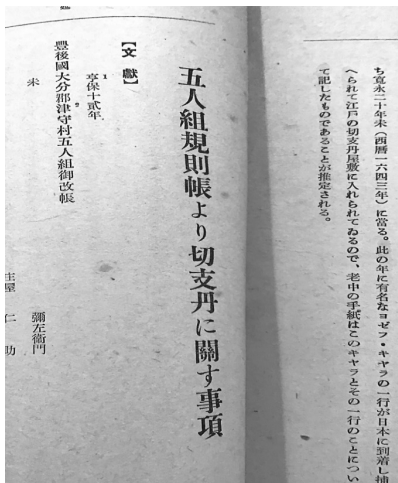 ち寛永二十年未(西暦一六四三年)に當る。此の年に有名なヨゼフ・キヤラの一行が日本に到着し捕
へられて江戸の切支丹屋敷に入れられてゐるので、老中の手紙はこのキヤラとその一行のことについ
て記したものであることが推定される。
五人組規則帳より切支丹に關す事項
【文獻】
1
享保十貳年
豊後國大分郡津守村五人組御改帳
未
彌左衞門
仁助